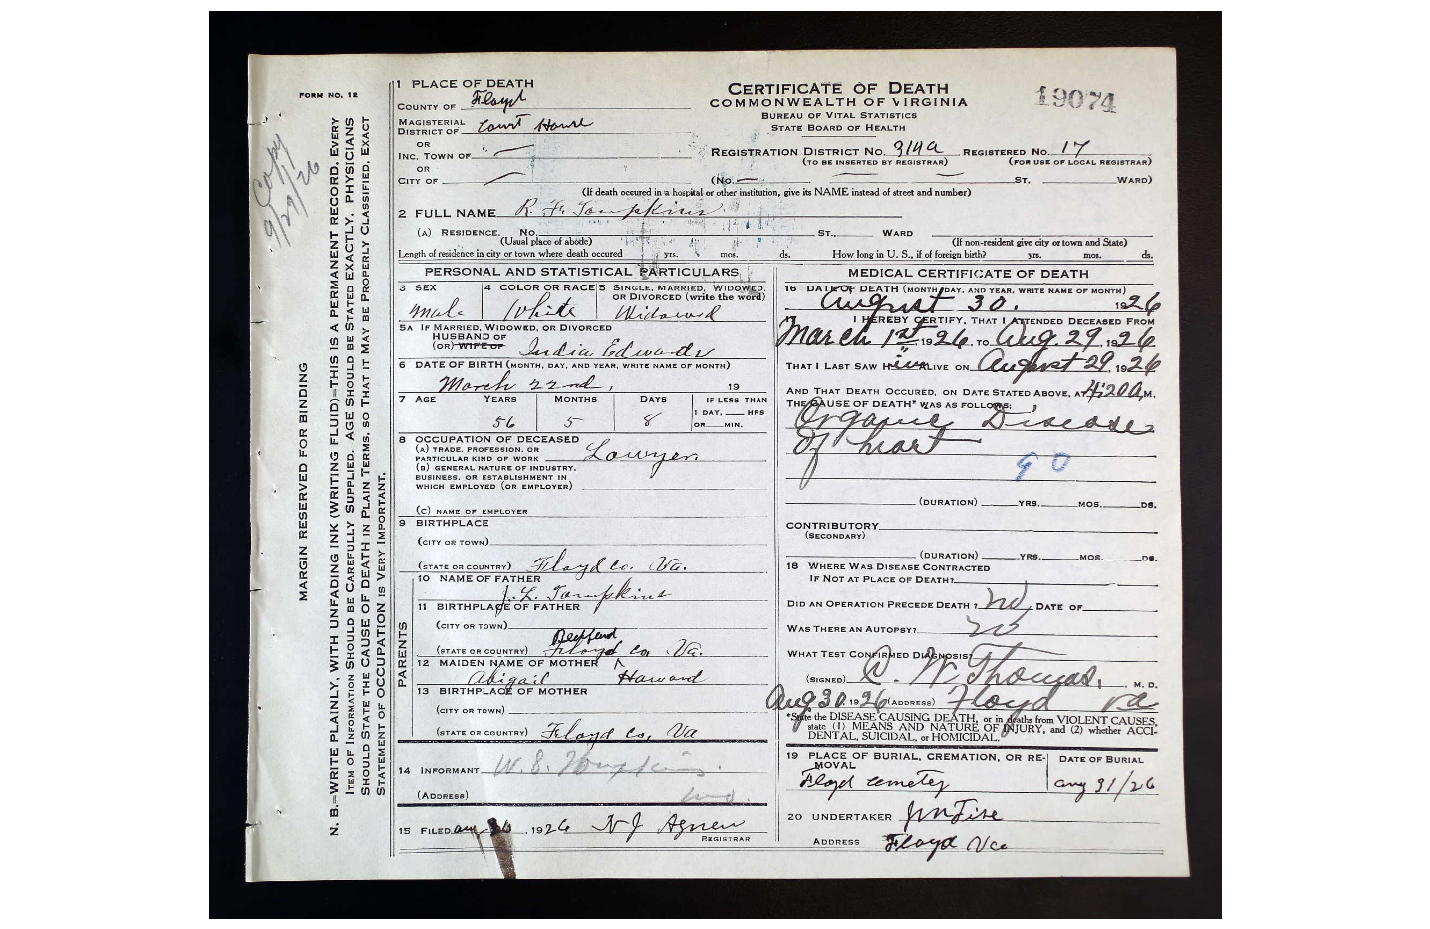 FORM NO. 12
Copy
9/29/26
MARGIN RESERVED FOR BINDING
N. B.—WRITE PLAINLY, WITH UNFADING INK (WRITING FLUID)—THIS IS A PERMANENT RECORD. EVERY
ITEM OF INFORMATION SHOULD BE CAREFULLY SUPPLIED. AGE SHOULD BE STATED EXACTLY. PHYSICIANS
SHOULD STATE THE CAUSE OF DEATH IN PLAIN TERMS, SO THAT IT MAY BE PROPERLY CLASSIFIED. EXACT
STATEMENT OF OCCUPATION IS VERY IMPORTANT.
1 PLACE OF DEATH
COUNTY OF Floyd
MAGISTERIAL
DISTRICT OF Court House
OR
INC. TOWN OF —
OR
CITY OF —
CERTIFICATE OF DEATH
COMMONWEALTH OF VIRGINIA
BUREAU OF VITAL STATISTICS
STATE BOARD OF HEALTH
19074
REGISTRATION DISTRICT NO. 319a REGISTERED NO. 17
(TO BE INSERTED BY REGISTRAR) (FOR USE OF LOCAL REGISTRAR)
(NO. — — — ST. WARD)
(If death occured in a hospital or other institution, give its NAME instead of street and number)
2 FULL NAME R. F. Tompkins
(A) RESIDENCE. NO. ST., WARD
(Usual place of abode) (If non-resident give city or town and State)
Length of residence in city or town where death occured yrs. mos. ds. How long in U. S., if of foreign birth? yrs. mos. ds.
PERSONAL AND STATISTICAL PARTICULARS
3 SEX 4 COLOR OR RACE 5 SINGLE, MARRIED, WIDOWED,
OR DIVORCED (write the word)
Male White Widowed
5A IF MARRIED, WIDOWED, OR DIVORCED
HUSBAND OF
(OR) WIFE OF India Edwards
6 DATE OF BIRTH (MONTH, DAY, AND YEAR, WRITE NAME OF MONTH)
March 22nd, 19
7 AGE YEARS MONTHS DAYS IF LESS THAN
1 DAY, HRS
OR MIN.
56 5 8
8 OCCUPATION OF DECEASED
(A) TRADE, PROFESSION, OR
PARTICULAR KIND OF WORK Lawyer
(B) GENERAL NATURE OF INDUSTRY,
BUSINESS, OR ESTABLISHMENT IN
WHICH EMPLOYED (OR EMPLOYER)
(C) NAME OF EMPLOYER
9 BIRTHPLACE
(CITY OR TOWN)
(STATE OR COUNTRY) Floyd co. Va.
PARENTS
10 NAME OF FATHER
J. L. Tompkins
11 BIRTHPLACE OF FATHER
(CITY OR TOWN)
(STATE OR COUNTRY) Floyd co Va.
12 MAIDEN NAME OF MOTHER
Abigail Howard
13 BIRTHPLACE OF MOTHER
(CITY OR TOWN)
(STATE OR COUNTRY) Floyd co, Va
14 INFORMANT W. S. Tompkins
(ADDRESS)
15 FILED aug 1926 N J Agnew
REGISTRAR
MEDICAL CERTIFICATE OF DEATH
16 DATE OF DEATH (MONTH, DAY, AND YEAR, WRITE NAME OF MONTH)
August 30. 1926
17 I HEREBY CERTIFY, THAT I ATTENDED DECEASED FROM
March 1st 1926, TO Aug. 29, 1926
THAT I LAST SAW him ALIVE ON August 29, 1926
AND THAT DEATH OCCURED, ON DATE STATED ABOVE, AT 4:20 a, M.
THE CAUSE OF DEATH* WAS AS FOLLOWS:
Organic Disease
of heart
90
(DURATION) YRS. MOS. DS.
CONTRIBUTORY
(SECONDARY)
(DURATION) YRS. MOS. DS.
18 WHERE WAS DISEASE CONTRACTED
IF NOT AT PLACE OF DEATH?
DID AN OPERATION PRECEDE DEATH? no DATE OF
WAS THERE AN AUTOPSY? no
WHAT TEST CONFIRMED DIAGNOSIS?
(SIGNED) C. W. Thomas, M. D.
Aug 30, 1926 (ADDRESS) Floyd Va
*State the DISEASE CAUSING DEATH, or in deaths from VIOLENT CAUSES,
state (1) MEANS AND NATURE OF INJURY, and (2) whether ACCI-
DENTAL, SUICIDAL, or HOMICIDAL.
19 PLACE OF BURIAL, CREMATION, OR RE- DATE OF BURIAL
MOVAL
Floyd cemetey aug 31/26
20 UNDERTAKER
ADDRESS Floyd Va